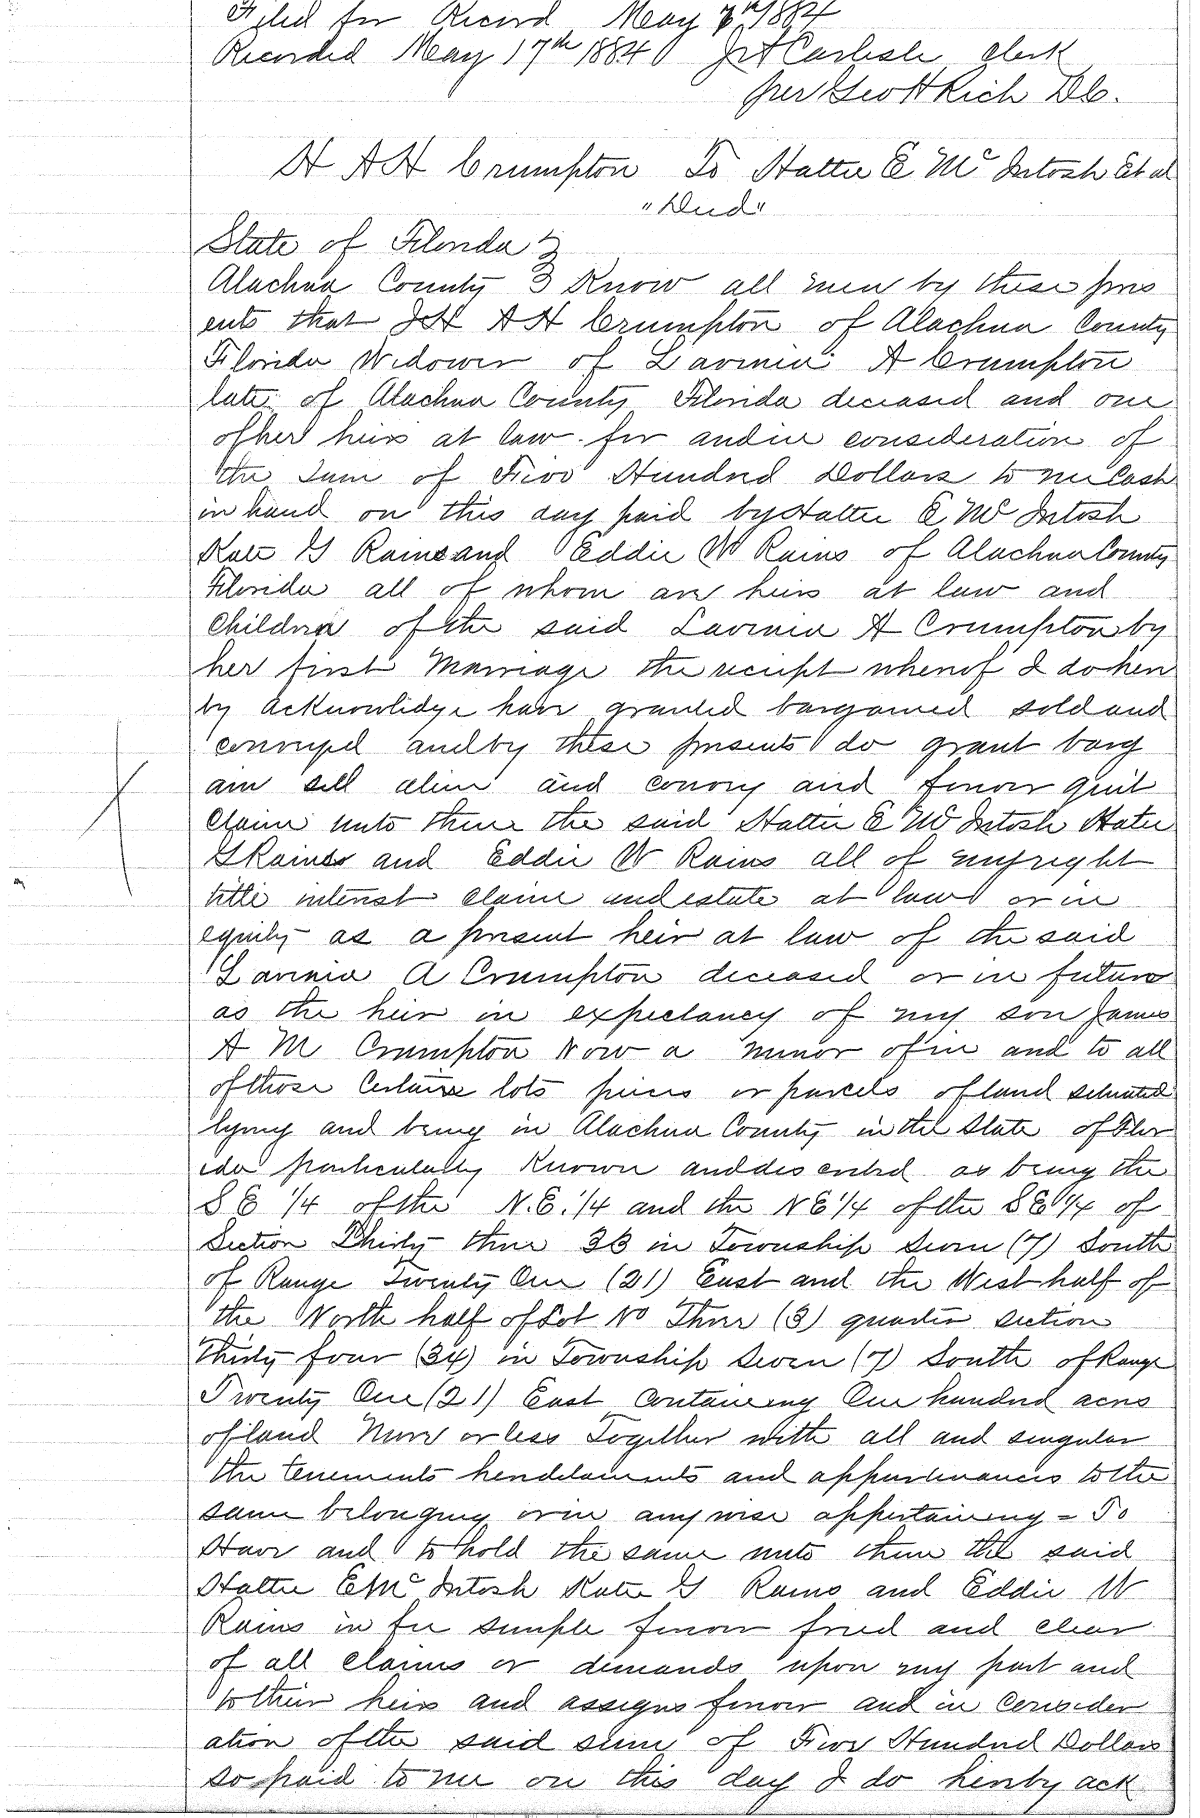 Filed for Record May 7th 1884
Recorded May 17th 1884 J A Carlisle Clerk
per Geo H Rich D.C.
H A H Crumpton To Hattie E McIntosh Et al
"Deed"
State of Florida }
Alachua County } Know all men by these pres
ents that I H A H Crumpton of Alachua County
Florida Widower of Lavinia A Crumpton
late of Alachua County Florida deceased and one
of her heirs at law for and in consideration of
the sum of Five Hundred Dollars to me Cash
in hand on this day paid by Hattie E McIntosh
Kate G Rains and Eddie W Rains of Alachua County
Florida all of whom are heirs at law and
Children of the said Lavinia A Crumpton by
her first Marriage the receipt whereof I do here
by acknowledge have granted bargained sold and
conveyed and by these presents do grant barg
ain sell alien and convey and forever quit
Claim unto them the said Hattie E McIntosh Kate
G Rains and Eddie W Rains all of my right
title interest claim and estate at law or in
equity as a present heir at law of the said
Lavinia A Crumpton deceased or in future
as the heir in expectancy of my son James
A M Crumpton Now a minor of in and to all
of those Certain lots pieces or parcels of land situated
lying and being in Alachua County in the State of Flor
ida particularly Known and described as being the
S E 1/4 of the N.E. 1/4 and the N E 1/4 of the S E 1/4 of
Section Thirty three 33 in Township Seven (7) South
of Range Twenty One (21) East and the West half of
the North half of Lot No Three (3) quarter section
Thirty four (34) in Township Seven (7) South of Range
Twenty One (21) East Containing One hundred acres
of land More or less Together with all and singular
the tenements hereditaments and appurtenances to the
same belonging or in any wise appertaining = To
Have and to hold the same unto them the said
Hattie E McIntosh Kate G Rains and Eddie W
Rains in fee simple forever freed and clear
of all claims or demands upon my part and
to their heirs and assigns forever and in Consider
ation of the said sum of Five Hundred Dollars
so paid to me on this day I do hereby ack